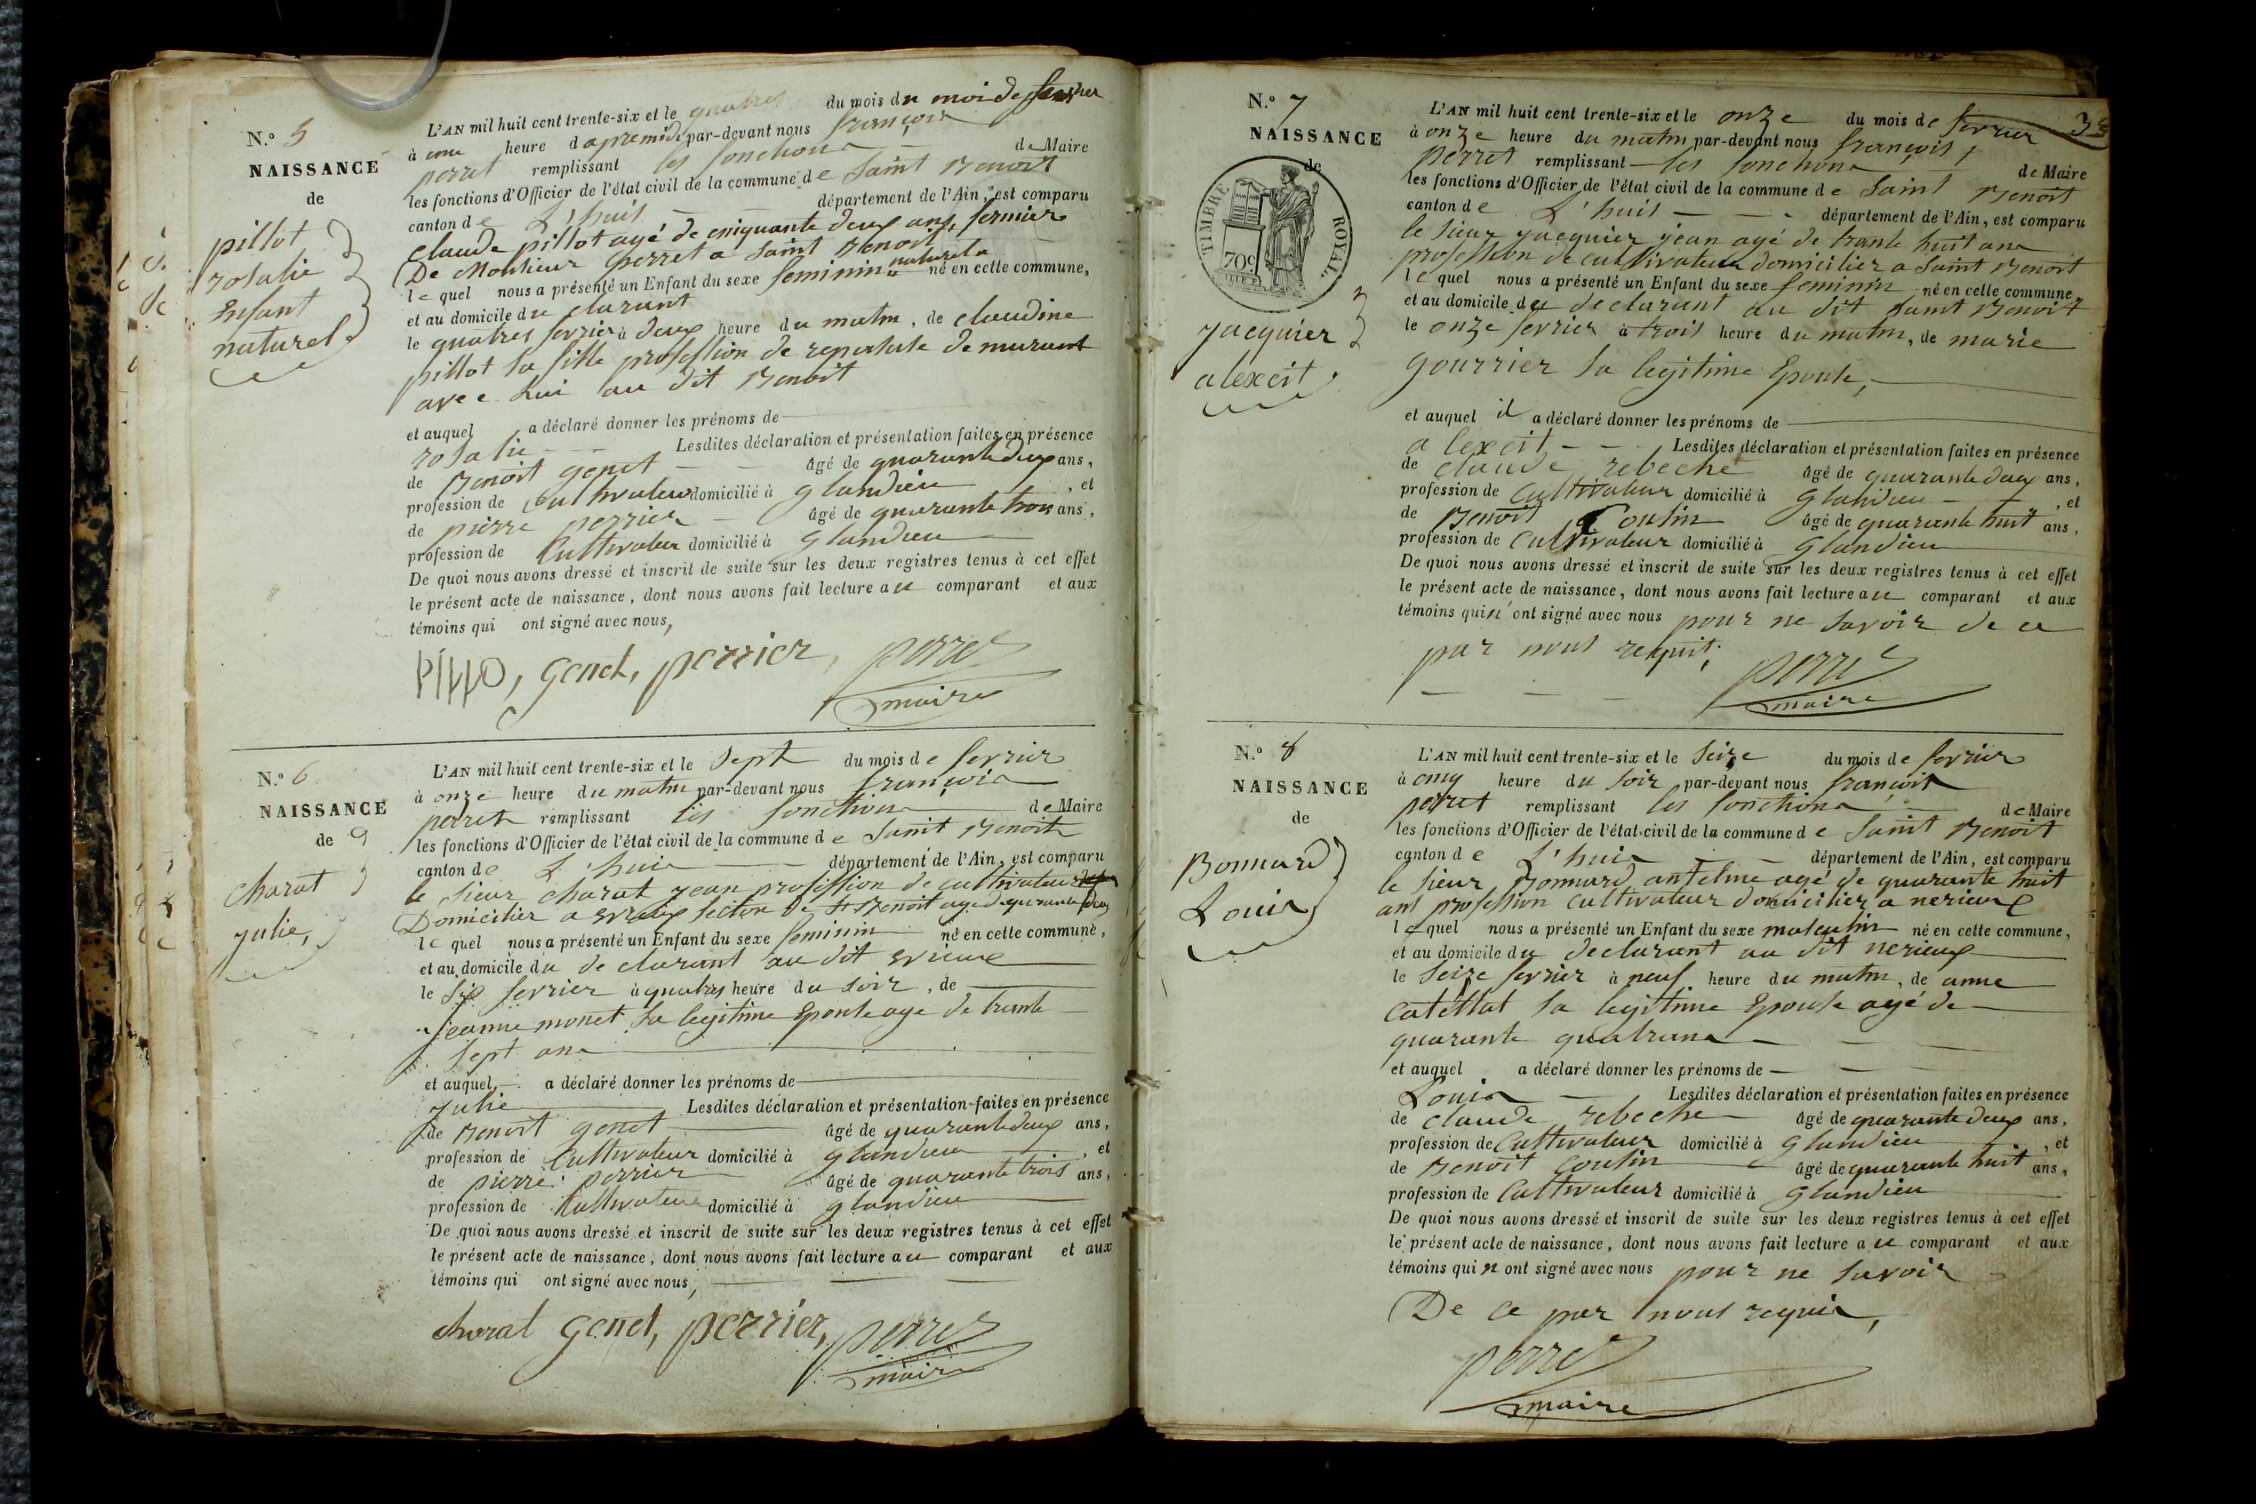 N.º 5
NAISSANCE
de
pillot
rosalie
Enfant
naturel
L'AN mil huit cent trente-six et le quatres du mois du moi de fevrier
à une heure d apremidi par-devant nous françois
perret remplissant les fonctions de Maire
les fonctions d'Officier de l'état civil de la commune de Saint Benoit
canton de L'huis département de l'Ain, est comparu
claude pillot agé de cinquante deux ans, fermier
De Monsieur perret a Saint Benoit,
lequel nous a présenté un Enfant du sexe feminin naturel né en cette commune,
et au domicile du clarant
le quatres fevrier à deux heure du matin, de claudine
pillot sa fille profession de repasseuse demeurant
avec lui au dit Benoit
et auquel a déclaré donner les prénoms de
rosalie Lesdites déclaration et présentation faites en présence
de Benoit genet âgé de quarante deux ans,
profession de Cultivateur domicilié à glandieu, et
de pierre perrier âgé de quarante trois ans,
profession de Cultivateur domicilié à glandieu
De quoi nous avons dressé et inscrit de suite sur les deux registres tenus à cet effet
le présent acte de naissance, dont nous avons fait lecture au comparant et aux
témoins qui ont signé avec nous,
pillo, genet, perrier, perret
maire
N.º 6
NAISSANCE
de
charat
julie,
L'AN mil huit cent trente-six et le Sept du mois de fevrier
à onze heure du matin par-devant nous françois
perret remplissant les fonctions de Maire
les fonctions d'Officier de l'état civil de la commune de Saint Benoit
canton de L'huis département de l'Ain, est comparu
le sieur charat jean profession de cultivateur
Domicilier a evrieux section de St Benoit age de quarante
lequel nous a présenté un Enfant du sexe feminin né en cette commune,
et au domicile du declarant au dit evrieux
le six fevrier à quatres heure du soir, de
jeanne monet sa legitime Epouse age de trente
sept ans
et auquel a déclaré donner les prénoms de
julie Lesdites déclaration et présentation faites en présence
de Benoit genet âgé de quarante deux ans,
profession de Cultivateur domicilié à glandieu, et
de pierre perrier âgé de quarante trois ans,
profession de Cultivateur domicilié à glandieu
De quoi nous avons dressé et inscrit de suite sur les deux registres tenus à cet effet
le présent acte de naissance, dont nous avons fait lecture au comparant et aux
témoins qui ont signé avec nous,
charat genet, perrier, perret
maire
N.º 7
NAISSANCE
de
TIMBRE ROYAL.
70c
jacquier
alexcit
L'AN mil huit cent trente-six et le onze du mois de fevrier
à onze heure du matin par-devant nous françois
perret remplissant les fonctions de Maire
les fonctions d'Officier de l'état civil de la commune de Saint Benoit
canton de L'huis département de l'Ain, est comparu
le sieur jacquier jean agé de trante huit ans
profession de cultivateur domicilier a Saint Benoit
lequel nous a présenté un Enfant du sexe feminin né en cette commune,
et au domicile du declarant au dit saint Benoit
le onze fevrier à trois heure du matin, de marie
gourrier sa legitime Epouse,
et auquel il a déclaré donner les prénoms de
alexcit Lesdites déclaration et présentation faites en présence
de claude rebeche âgé de quarante deux ans,
profession de Cultivateur domicilié à glandieu, et
de Benoit Cousin âgé de quarante huit ans,
profession de Cultivateur domicilié à glandieu
De quoi nous avons dressé et inscrit de suite sur les deux registres tenus à cet effet
le présent acte de naissance, dont nous avons fait lecture au comparant et aux
témoins qui n'ont signé avec nous pour ne savoir de ce
par nous requit;
perret
maire
N.º 8
NAISSANCE
de
Bonnard
Louis
L'AN mil huit cent trente-six et le Seize du mois de fevrier
à cinq heure du soir par-devant nous françois
perret remplissant les fonctions de Maire
les fonctions d'Officier de l'état civil de la commune de Saint Benoit
canton de L'huis département de l'Ain, est comparu
le sieur Bonnard antelme agé de quarante huit
ans profession cultivateur domicilier a nerieux
lequel nous a présenté un Enfant du sexe masculin né en cette commune,
et au domicile du declarant au dit nerieux
le Seize fevrier à neuf heure du matin, de anne
catettat sa legitime Epouse agé de
quarante quatrans
et auquel a déclaré donner les prénoms de
Louis Lesdites déclaration et présentation faites en présence
de claude rebeche âgé de quarante deux ans,
profession de Cultivateur domicilié à glandieu, et
de Benoit Cousin âgé de quarante huit ans,
profession de Cultivateur domicilié à glandieu
De quoi nous avons dressé et inscrit de suite sur les deux registres tenus à cet effet
le présent acte de naissance, dont nous avons fait lecture au comparant et aux
témoins qui n ont signé avec nous pour ne savoir
De ce par nous requis,
perret
maire